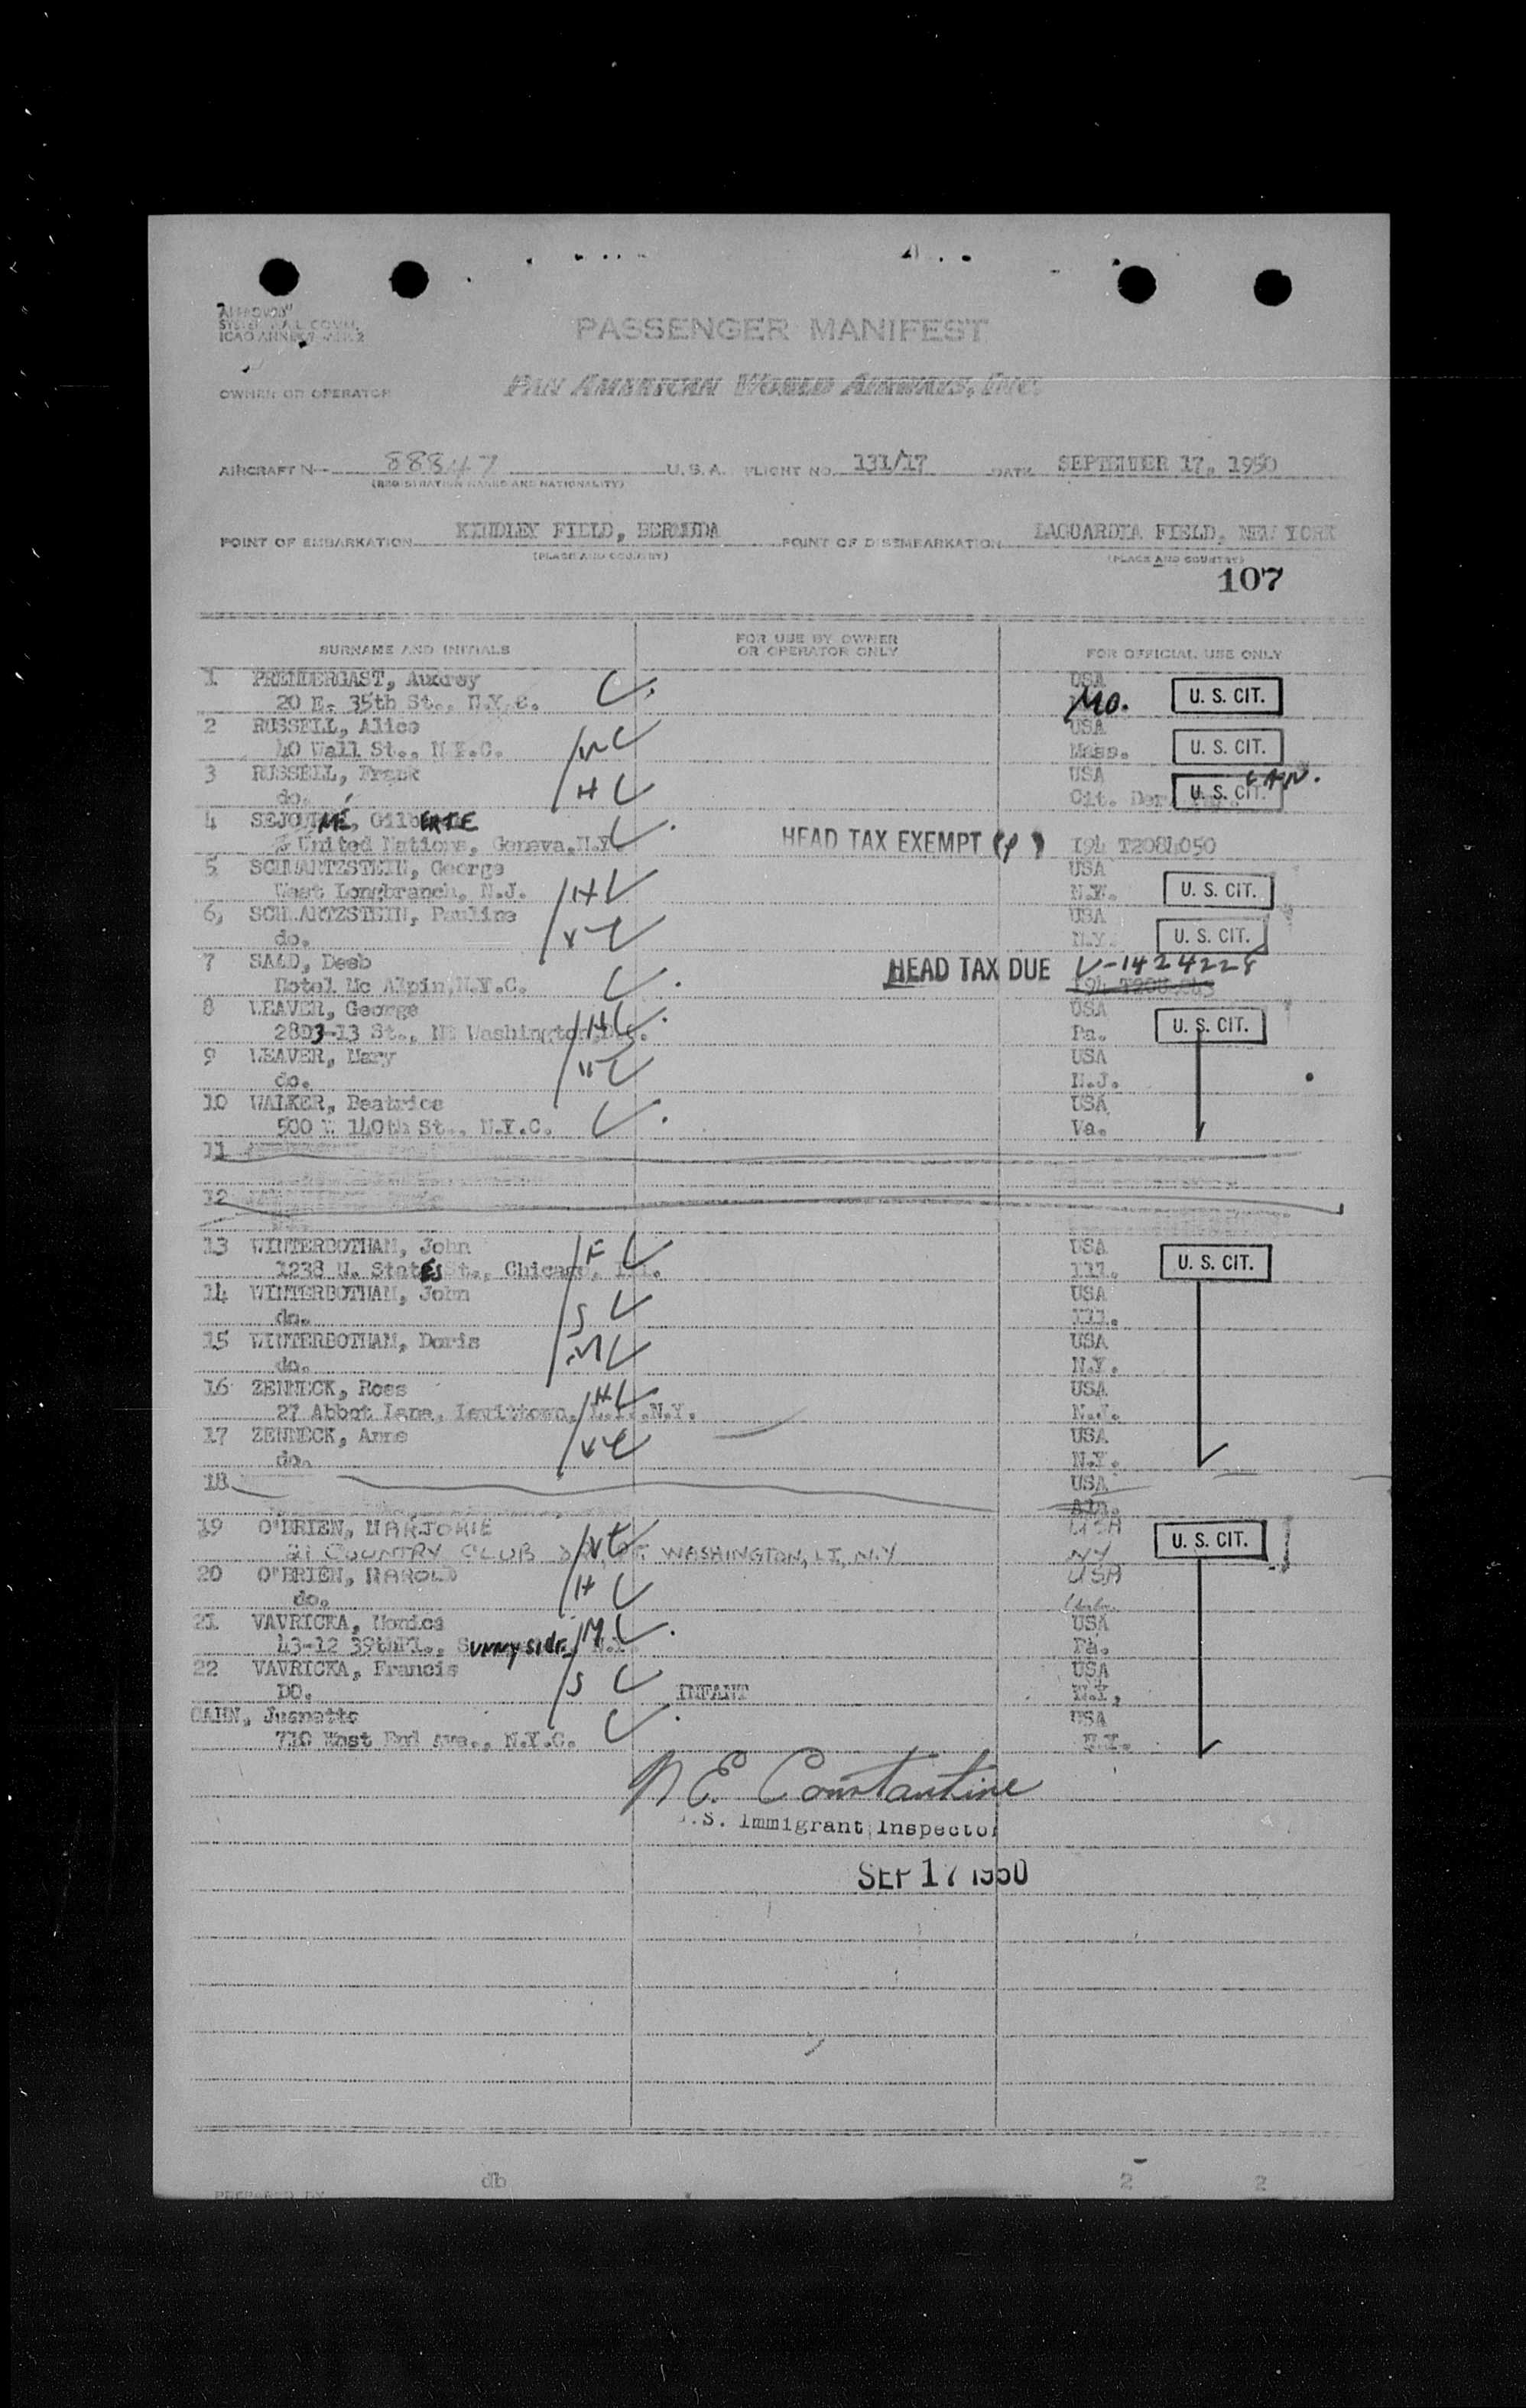 "APPROVED"
ICAO ANNEX 9
PASSENGER MANIFEST
OWNER OR OPERATOR PAN AMERICAN WORLD AIRWAYS, INC.
AIRCRAFT N- 88847 U. S. A. FLIGHT NO. 131/17 DATE SEPTEMBER 17, 1950
(REGISTRATION MARKS AND NATIONALITY)
POINT OF EMBARKATION KINDLEY FIELD, BERMUDA POINT OF DISEMBARKATION LAGUARDIA FIELD, NEW YORK
(PLACE AND COUNTRY) (PLACE AND COUNTRY)
107
SURNAME AND INITIALS FOR USE BY OWNER OR OPERATOR ONLY FOR OFFICIAL USE ONLY
1 PRENDERGAST, Audrey USA
20 E. 35th St., N.Y.C. Mo. U. S. CIT.
2 RUSSELL, Alice USA
40 Wall St., N.Y.C. W Mass. U. S. CIT.
3 RUSSELL, Frank USA
do. H Cit. Der. U. S. CIT.
4 SEJOURNÉ, GilbERTE
% United Nations, Geneva, N.Y. HEAD TAX EXEMPT I94 T2084050
5 SCHWARTZSTEIN, George USA
West Longbranch, N.J. H N.Y. U. S. CIT.
6, SCHWARTZSTEIN, Pauline USA
do. W N.Y. U. S. CIT.
7 SAAD, Deeb HEAD TAX DUE V-1424228
Hotel Mc Alpin, N.Y.C. I94
8 WEAVER, George USA
2803-13 St., NE Washington, D.C. H Pa. U. S. CIT.
9 WEAVER, Mary USA
do. W N.J.
10 WALKER, Beatrice USA
500 W. 140th St., N.Y.C. Va.
11
12
13 WINTERBOTHAM, John F USA
1238 N. StatES St., Chicago, Ill. Ill. U. S. CIT.
14 WINTERBOTHAM, John USA
do. S Ill.
15 WINTERBOTHAM, Doris USA
do. M N.Y.
16 ZENNECK, Ross H USA
27 Abbot Lane, Levittown, L.I. N.Y. N.J.
17 ZENNECK, Anne USA
do. W N.Y.
18 USA
Ala.
19 O'BRIEN, MARJORIE USA
21 COUNTRY CLUB DR., PT. WASHINGTON, LI, N.Y W NY U. S. CIT.
20 O'BRIEN, HAROLD USA
do. H
21 VAVRICKA, Monica M USA
43-12 39thPl., SUNNYSIDE, N.Y. Pa.
22 VAVRICKA, Francis USA
DO. S INFANT N.Y.
CAHN, Jeanette USA
710 West End Ave., N.Y.C. N.Y.
N E. Constantine
U.S. Immigrant Inspector
SEP 17 1950
db 2 2
PREPARED BY